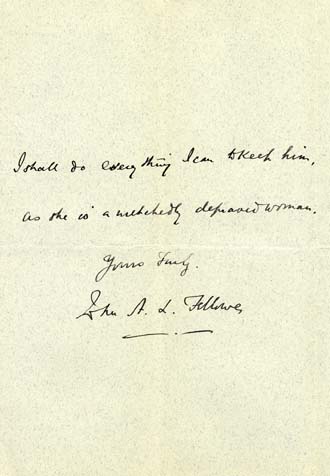 I shall do everything I can to keep him,
as she is a wretchedly depraved woman.
Yours truly.
John A. L. Fellowes